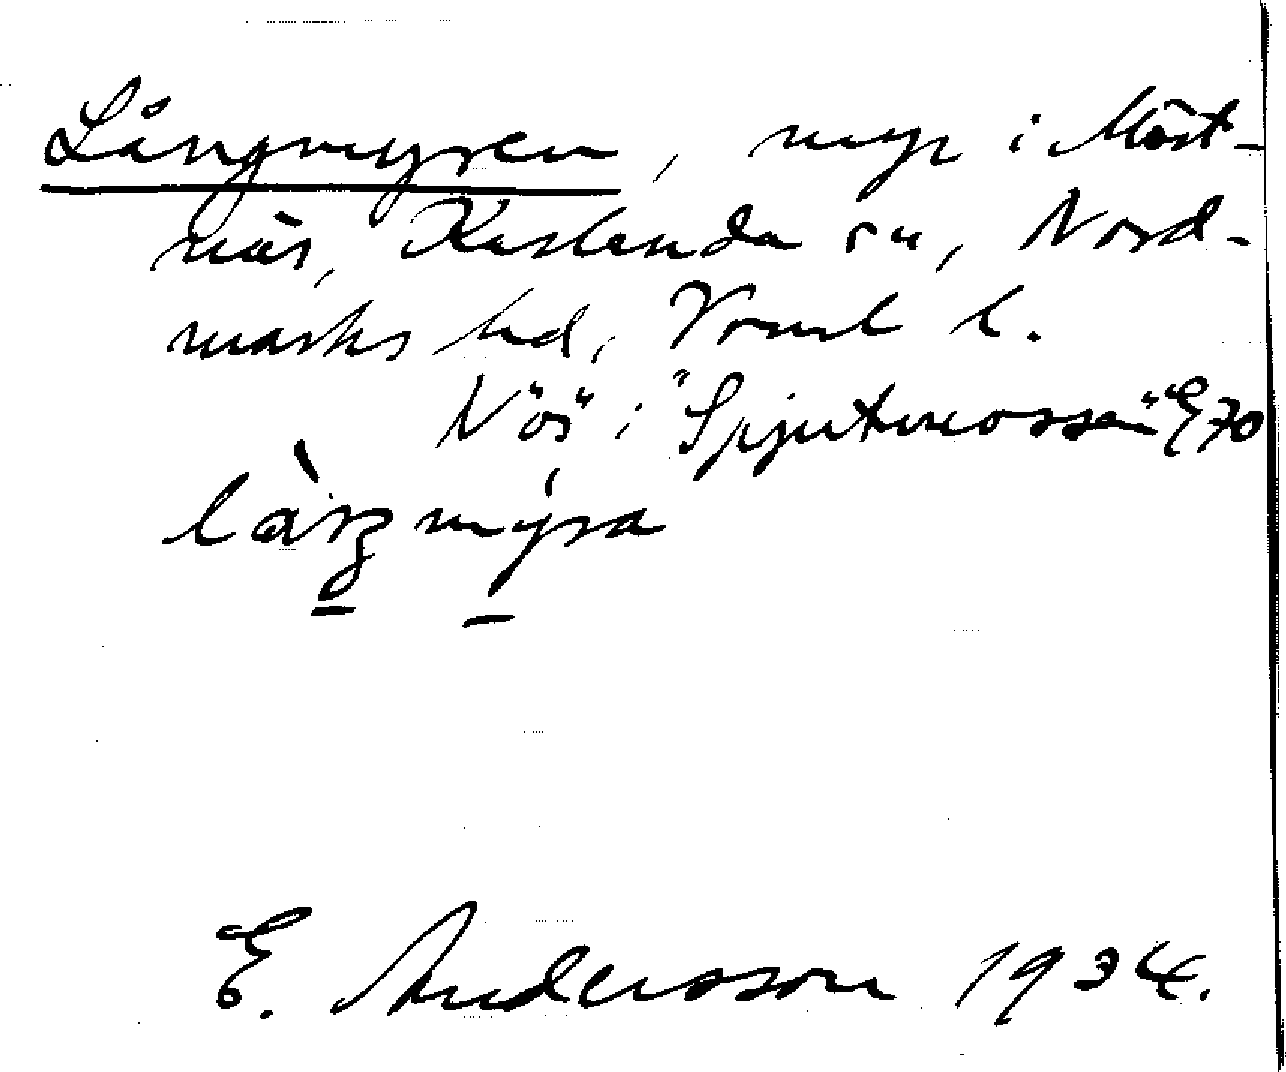 Långmyren, myr i Möst-
näs, Karlanda sn, Nord-
marks hd, Vrml l.
N"ös" i "Spjutmossen" E70
làŋmýra
E. Andersson 1934.